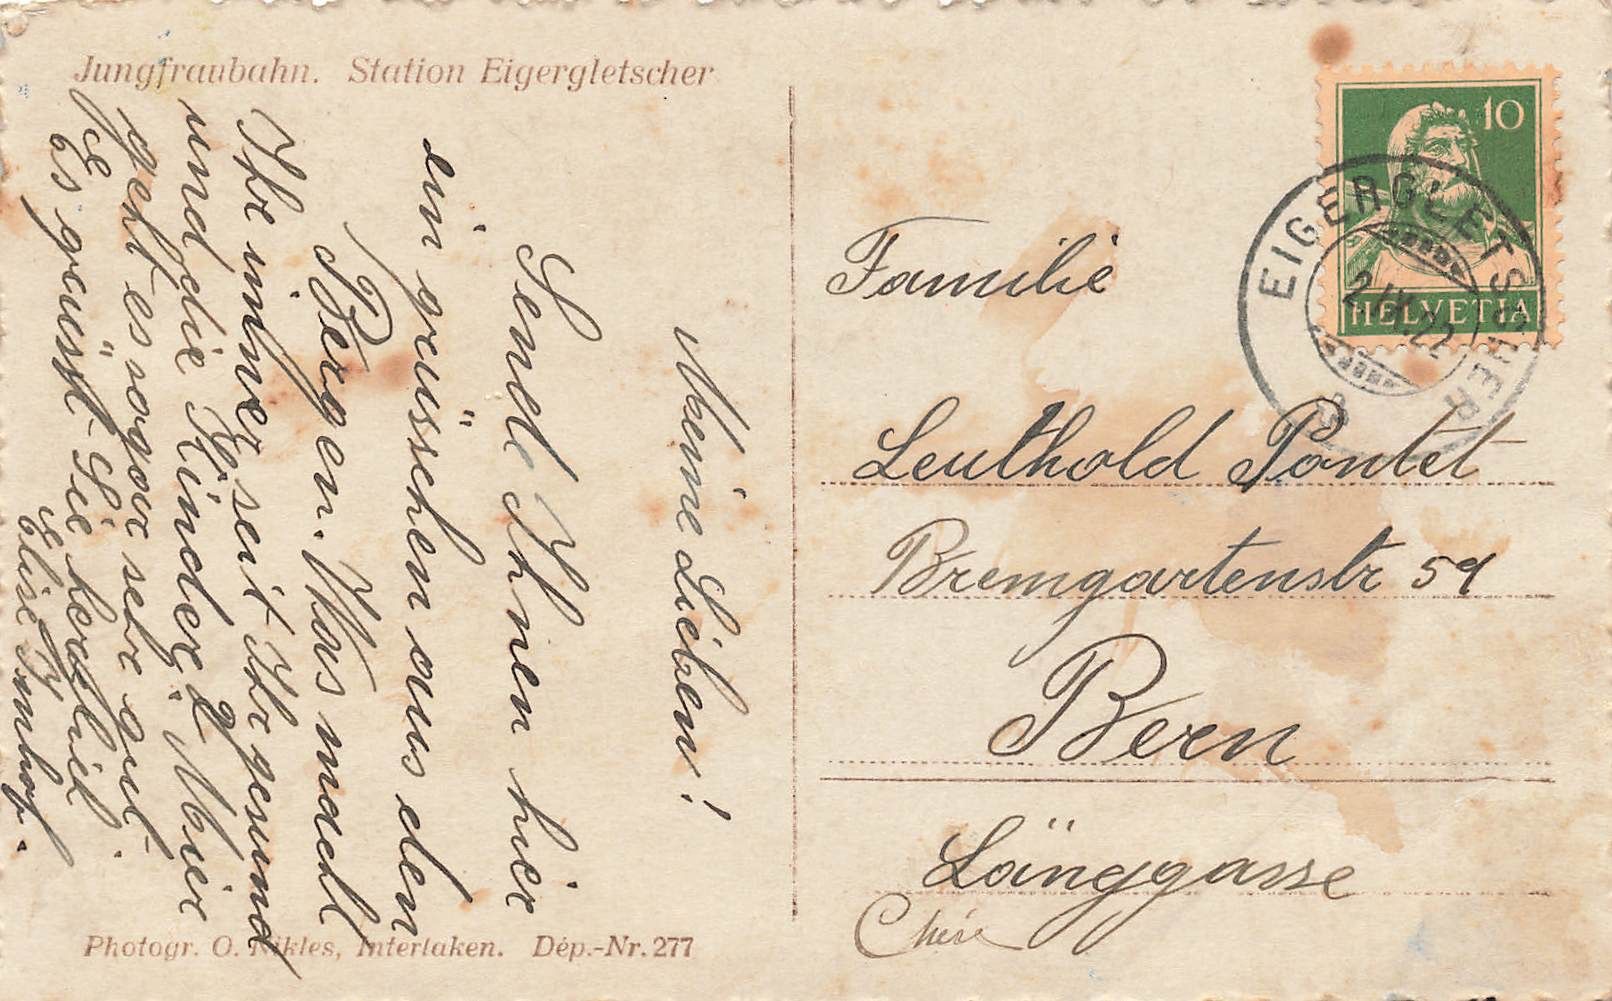 Jungfraubahn. Station Eigergletscher
Meine Lieben!
Sende Ihnen hier
ein grüsschen aus den
Bergen. Was macht
Ihr immer seit Ihr gesund
und die Kinder? Mir
geht es sogar sehr gut.
Es grüsst Sie herzlich
Elise Imhof.
Photogr. O. Nikles, Interlaken. Dép.-Nr. 277
10
HELVETIA
EIGERGLETSCHER
2.IX.22
Familie
Leuthold Pontet
Bremgartenstr 59
Bern
Länggasse